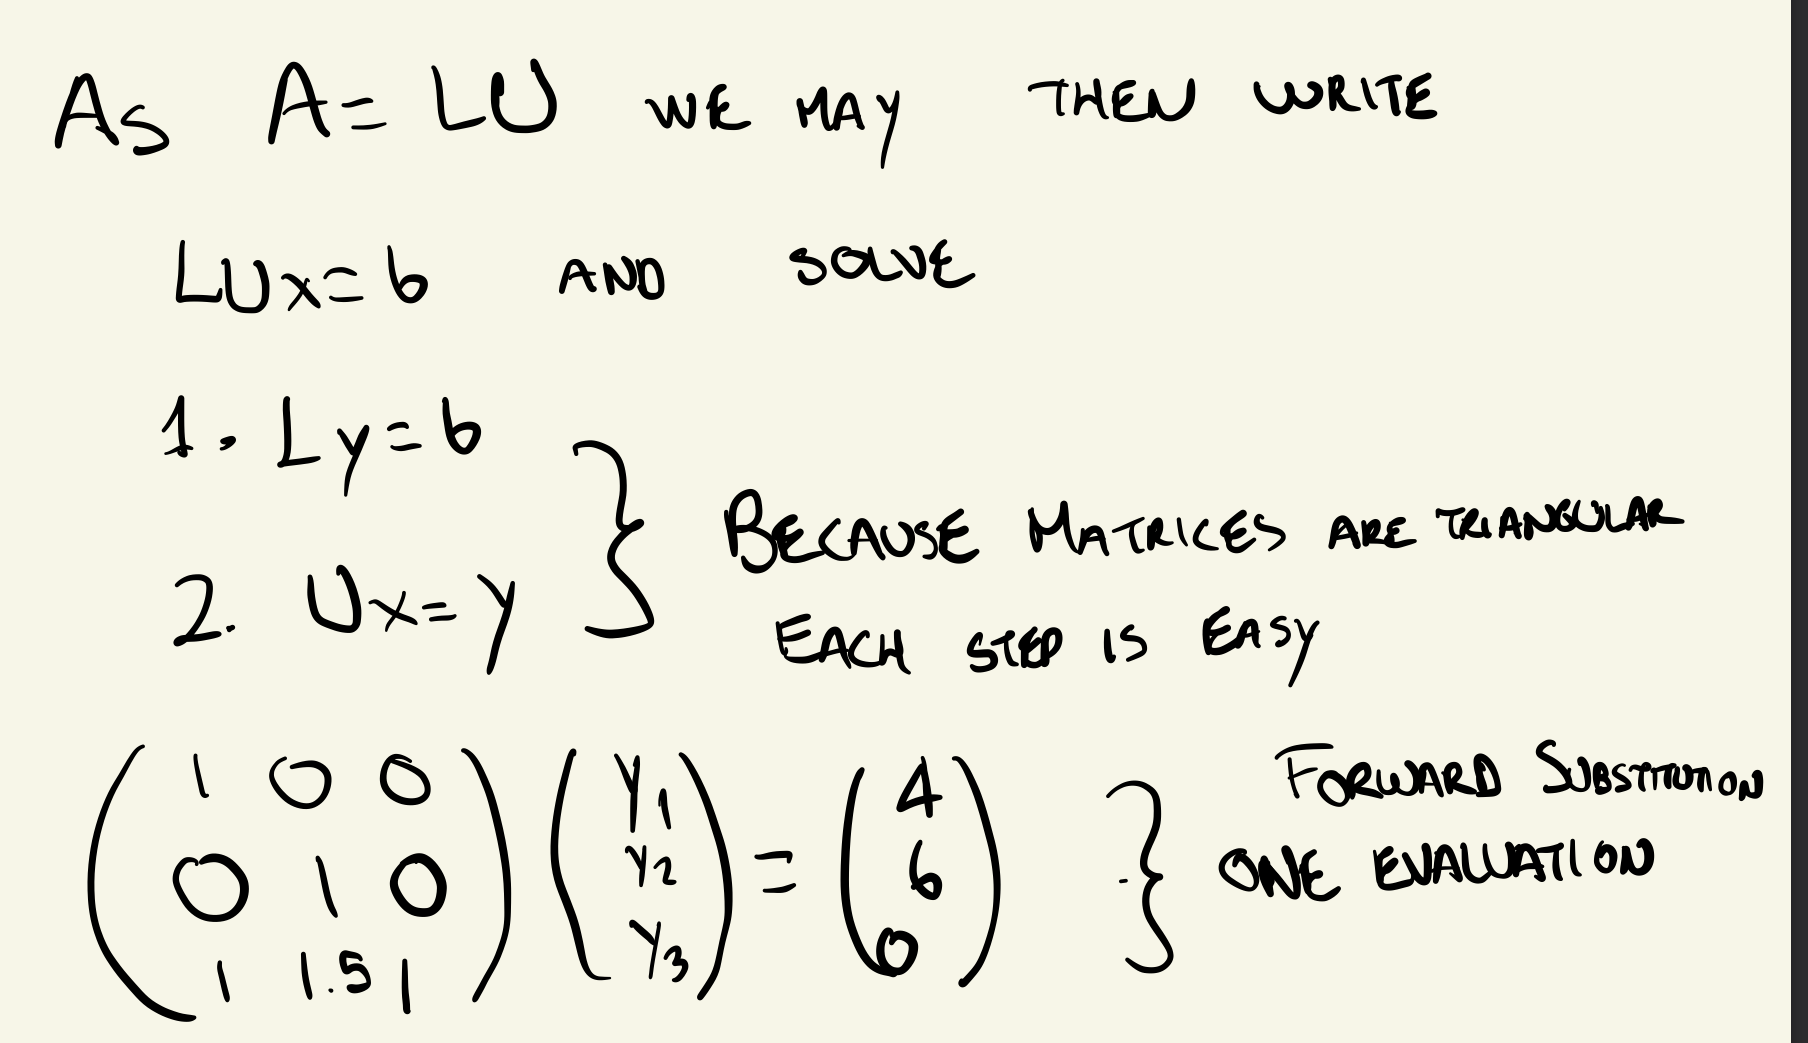 As A = LU WE MAY THEN WRITE
LUx = b AND SOLVE
1. Ly = b
2. Ux = y
BECAUSE MATRICES ARE TRIANGULAR
EACH STEP IS EASY
( 1 0 0 ) ( y1 ) = ( 4 )
( 0 1 0 ) ( y2 ) = ( 6 )
( 1 1.5 1 ) ( y3 ) = ( 0 )
FORWARD SUBSTITUTION
ONE EVALUATION